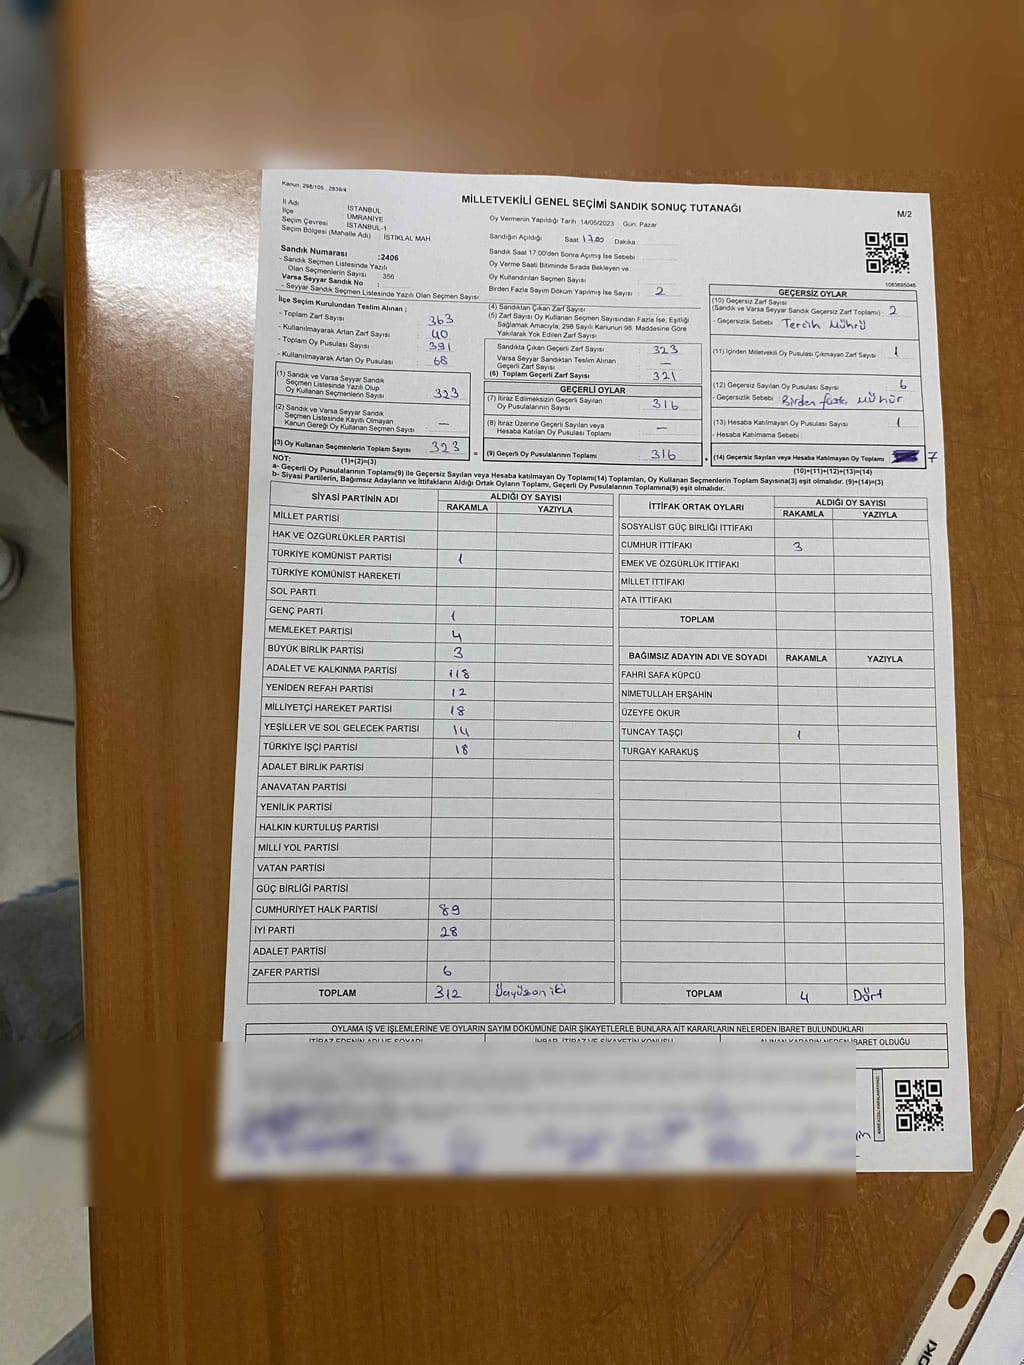 Kanun: 298/105 , 2839/4
MİLLETVEKİLİ GENEL SEÇİMİ SANDIK SONUÇ TUTANAĞI
M/2
İl Adı : İSTANBUL
İlçe : ÜMRANİYE
Seçim Çevresi : İSTANBUL-1
Seçim Bölgesi (Mahalle Adı) : İSTİKLAL MAH.
Oy Vermenin Yapıldığı Tarih :14/05/2023 Gün: Pazar
Sandığın Açıldığı Saat 17.00 Dakika
Sandık Saat 17.00'den Sonra Açılmış İse Sebebi
Oy Verme Saati Bitiminde Sırada Bekleyen ve
Oy Kullandırılan Seçmen Sayısı
Birden Fazla Sayım Döküm Yapılmış İse Sayısı : 2
Sandık Numarası :2406
- Sandık Seçmen Listesinde Yazılı
Olan Seçmenlerin Sayısı : 356
Varsa Seyyar Sandık No :
- Seyyar Sandık Seçmen Listesinde Yazılı Olan Seçmen Sayısı:
1083695046
İlçe Seçim Kurulundan Teslim Alınan ;
- Toplam Zarf Sayısı 363
- Kullanılmayarak Artan Zarf Sayısı 40
- Toplam Oy Pusulası Sayısı 391
- Kullanılmayarak Artan Oy Pusulası 68
(1) Sandık ve Varsa Seyyar Sandık
Seçmen Listesinde Yazılı Olup
Oy Kullanan Seçmenlerin Sayısı 323
(2) Sandık ve Varsa Seyyar Sandık
Seçmen Listesinde Kayıtlı Olmayan
Kanun Gereği Oy Kullanan Seçmen Sayısı —
(3) Oy Kullanan Seçmenlerin Toplam Sayısı 323
(1)+(2)=(3)
(4) Sandıktan Çıkan Zarf Sayısı
(5) Zarf Sayısı Oy Kullanan Seçmen Sayısından Fazla İse, Eşitliği
Sağlamak Amacıyla; 298 Sayılı Kanunun 98. Maddesine Göre
Yakılarak Yok Edilen Zarf Sayısı
Sandıkta Çıkan Geçerli Zarf Sayısı 323
Varsa Seyyar Sandıktan Teslim Alınan
Geçerli Zarf Sayısı —
(6) Toplam Geçerli Zarf Sayısı 321
GEÇERLİ OYLAR
(7) İtiraz Edilmeksizin Geçerli Sayılan
Oy Pusulalarının Sayısı 316
(8) İtiraz Üzerine Geçerli Sayılan veya
Hesaba Katılan Oy Pusulası Toplamı —
= (9) Geçerli Oy Pusulalarının Toplamı 316
GEÇERSİZ OYLAR
(10) Geçersiz Zarf Sayısı
(Sandık ve Varsa Seyyar Sandık Geçersiz Zarf Toplamı) 2
- Geçersizlik Sebebi Tercih Mührü
(11) İçinden Milletvekili Oy Pusulası Çıkmayan Zarf Sayısı 1
(12) Geçersiz Sayılan Oy Pusulası Sayısı 6
- Geçersizlik Sebebi : Birden fazla mühür
(13) Hesaba Katılmayan Oy Pusulası Sayısı 1
- Hesaba Katılmama Sebebi :
+ (14) Geçersiz Sayılan veya Hesaba Katılmayan Oy Toplamı 7
(10)+(11)+(12)+(13)=(14)
NOT:
a- Geçerli Oy Pusulalarının Toplamı(9) ile Geçersiz Sayılan veya Hesaba katılmayan Oy Toplamı(14) Toplamları, Oy Kullanan Seçmenlerin Toplam Sayısına(3) eşit olmalıdır. (9)+(14)=(3)
b- Siyasi Partilerin, Bağımsız Adayların ve İttifakların Aldığı Ortak Oyların Toplamı, Geçerli Oy Pusulalarının Toplamına(9) eşit olmalıdır.
SİYASİ PARTİNİN ADI ALDIĞI OY SAYISI
RAKAMLA YAZIYLA
MİLLET PARTİSİ
HAK VE ÖZGÜRLÜKLER PARTİSİ
TÜRKİYE KOMÜNİST PARTİSİ 1
TÜRKİYE KOMÜNİST HAREKETİ
SOL PARTİ
GENÇ PARTİ 1
MEMLEKET PARTİSİ 4
BÜYÜK BİRLİK PARTİSİ 3
ADALET VE KALKINMA PARTİSİ 118
YENİDEN REFAH PARTİSİ 12
MİLLİYETÇİ HAREKET PARTİSİ 18
YEŞİLLER VE SOL GELECEK PARTİSİ 14
TÜRKİYE İŞÇİ PARTİSİ 18
ADALET BİRLİK PARTİSİ
ANAVATAN PARTİSİ
YENİLİK PARTİSİ
HALKIN KURTULUŞ PARTİSİ
MİLLİ YOL PARTİSİ
VATAN PARTİSİ
GÜÇ BİRLİĞİ PARTİSİ
CUMHURİYET HALK PARTİSİ 89
İYİ PARTİ 28
ADALET PARTİSİ
ZAFER PARTİSİ 6
TOPLAM 312 Üçyüzoniki
İTTİFAK ORTAK OYLARI ALDIĞI OY SAYISI
RAKAMLA YAZIYLA
SOSYALİST GÜÇ BİRLİĞİ İTTİFAKI
CUMHUR İTTİFAKI 3
EMEK VE ÖZGÜRLÜK İTTİFAKI
MİLLET İTTİFAKI
ATA İTTİFAKI
TOPLAM
BAĞIMSIZ ADAYIN ADI VE SOYADI RAKAMLA YAZIYLA
FAHRİ SAFA KÜPCÜ
NİMETULLAH ERŞAHİN
ÜZEYFE OKUR
TUNCAY TAŞÇI 1
TURGAY KARAKUŞ
TOPLAM 4 Dört
OYLAMA İŞ VE İŞLEMLERİNE VE OYLARIN SAYIM DÖKÜMÜNE DAİR ŞİKAYETLERLE BUNLARA AİT KARARLARIN NELERDEN İBARET BULUNDUKLARI
İTİRAZ EDENİN ADI VE SOYADI İHBAR, İTİRAZ VE ŞİKAYETİN KONUSU ALINAN KARARIN NEDEN İBARET OLDUĞU